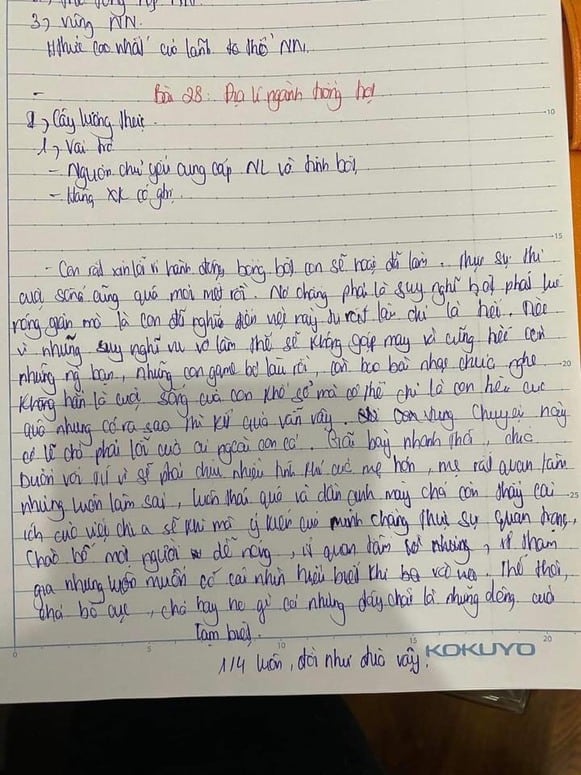 3, vùng NN.
Hthức cao nhất của lãnh thổ NN.
-
Bài 28: Địa lí ngành trồng trọt
1, Cây lương thực.
1, Vai trò
- Nguồn chủ yếu cung cấp NL và tinh bột
- Hàng XK có
10
15
- Con rất xin lỗi vì hành động bồng bột con sẽ hoặc đã làm. Thực sự thì
cuộc sống cũng quá mỏi mệt rồi. Nó chẳng phải là suy nghĩ bột phát lúc
nóng giận mà là con đã nghĩ đến việc này từ rất lâu chỉ là hôi.
vì những suy nghĩ vu vơ làm thế sẽ không gặp may vì cũng hết còn
những ng bạn, những con game bỏ lâu rồi, còn bao bài nhạc chưa nghe
20
Không hẳn là cuộc sống của con khổ sở mà có thể chỉ là con tiêu cực
quá nhưng có ra sao thì kết quả vẫn vậy. Con nghĩ chuyện này
có lẽ chả phải lỗi của ai ngoài con cả. Giãi bày nhanh thôi, chỉ
buồn với vì sẽ phải chịu nhiều tính khí của mẹ hơn, mẹ rất quan tâm
nhưng luôn làm sai, luôn thái quá và dần anh mày chả còn thấy cái
25
ích của việc chia sẻ khi mà ý kiến của mình chẳng thực sự quan trọng,
Chào bố một người dễ nóng, ít quan tâm nhưng, ít tham
gia nhưng luôn muốn có cái nhìn hiểu biết khi Thế thôi,
chả bố cục, chả hay ho gì cả nhưng đây chỉ là những dòng cuối
Tạm biệt.
0
5
10
15
20
KOKUYO
1/4 luôn, đời như đùa vậy.